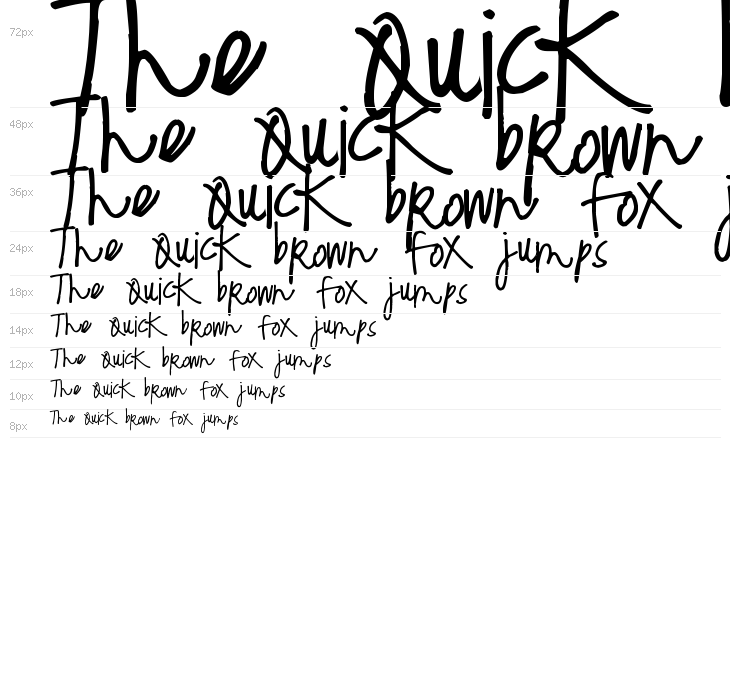 72px The Quick
48px The Quick brown
36px The Quick brown fox
24px The Quick brown fox jumps
18px The Quick brown fox jumps
14px The Quick brown fox jumps
12px The Quick brown fox jumps
10px The Quick brown fox jumps
8px The Quick brown fox jumps